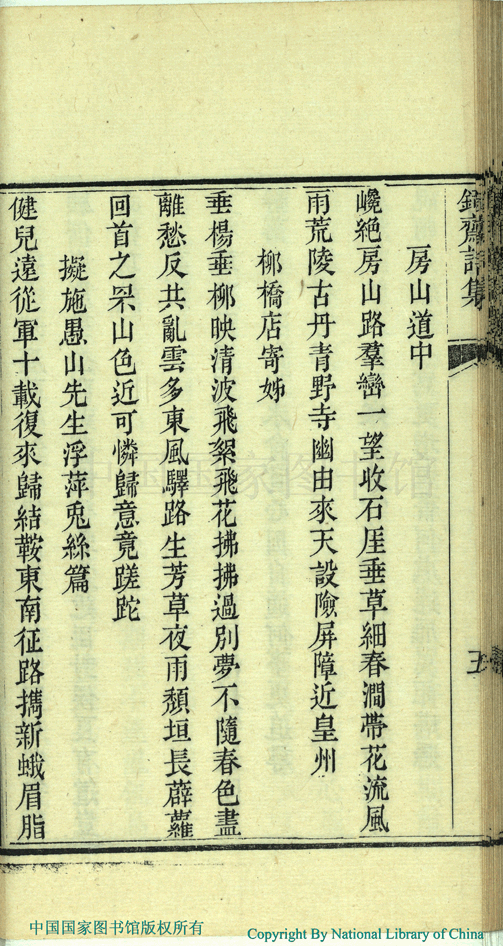 齋詩集
五
房山道中
巉絕房山路羣巒一望收石厓垂草細春澗帶花流風
雨荒陵古丹青野寺幽由來天設險屏障近皇州
柳橋店寄姊
垂楊垂柳映清波飛絮飛花拂拂過別夢不隨春色盡
離愁反共亂雲多東風驛路生芳草夜雨頽垣長薜蘿
回首之罘山色近可憐歸意竟蹉跎
擬施愚山先生浮萍兎絲篇
健兒遠從軍十載復來歸結鞍東南征路擕新蛾眉脂
中国国家图书馆
中国国家图书馆版权所有
Copyright By National Library of China